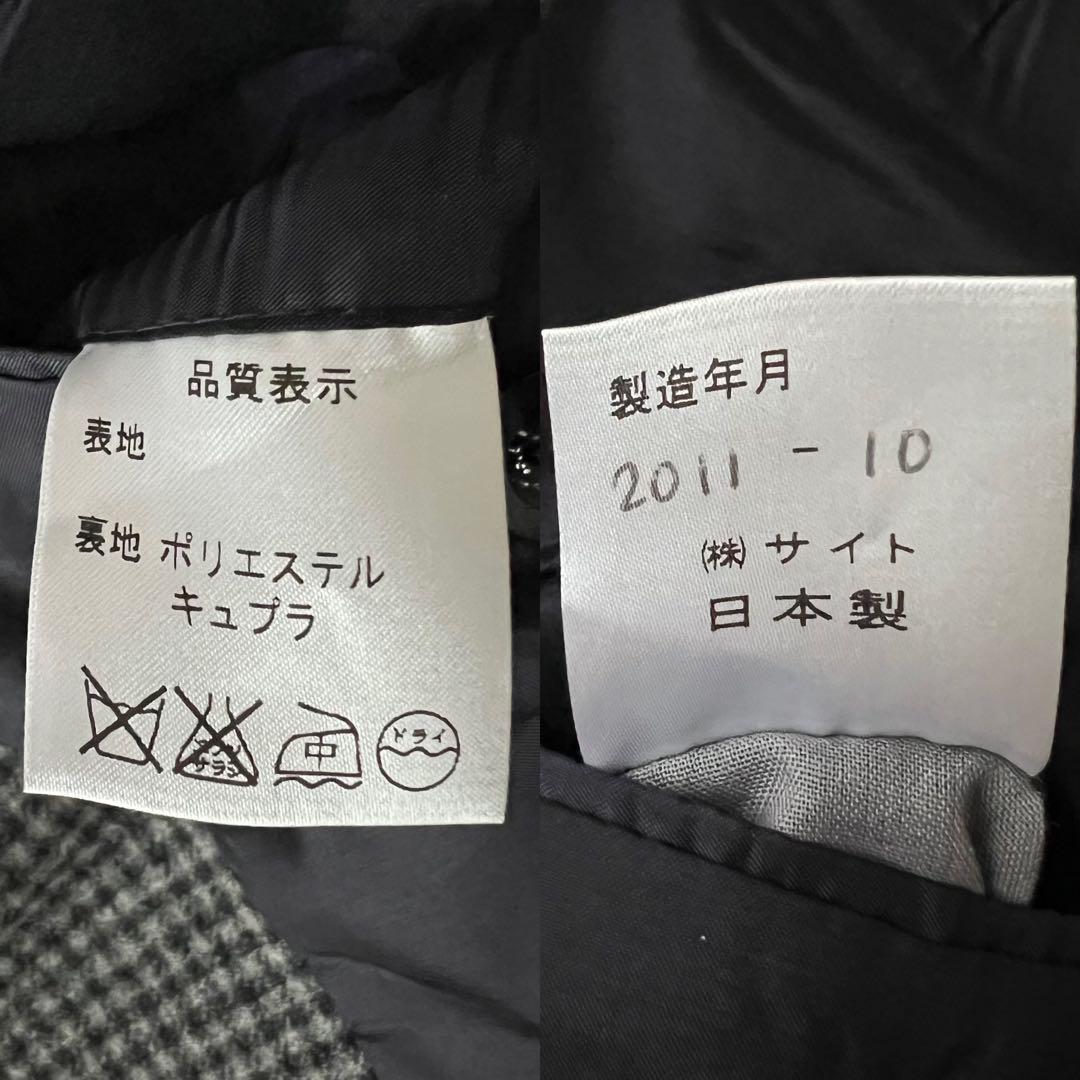 品質表示
表地
裏地 ポリエステル
キュプラ
エンソ
サラシ
中
ドライ
製造年月
2011 - 10
㈱ サイト
日本製